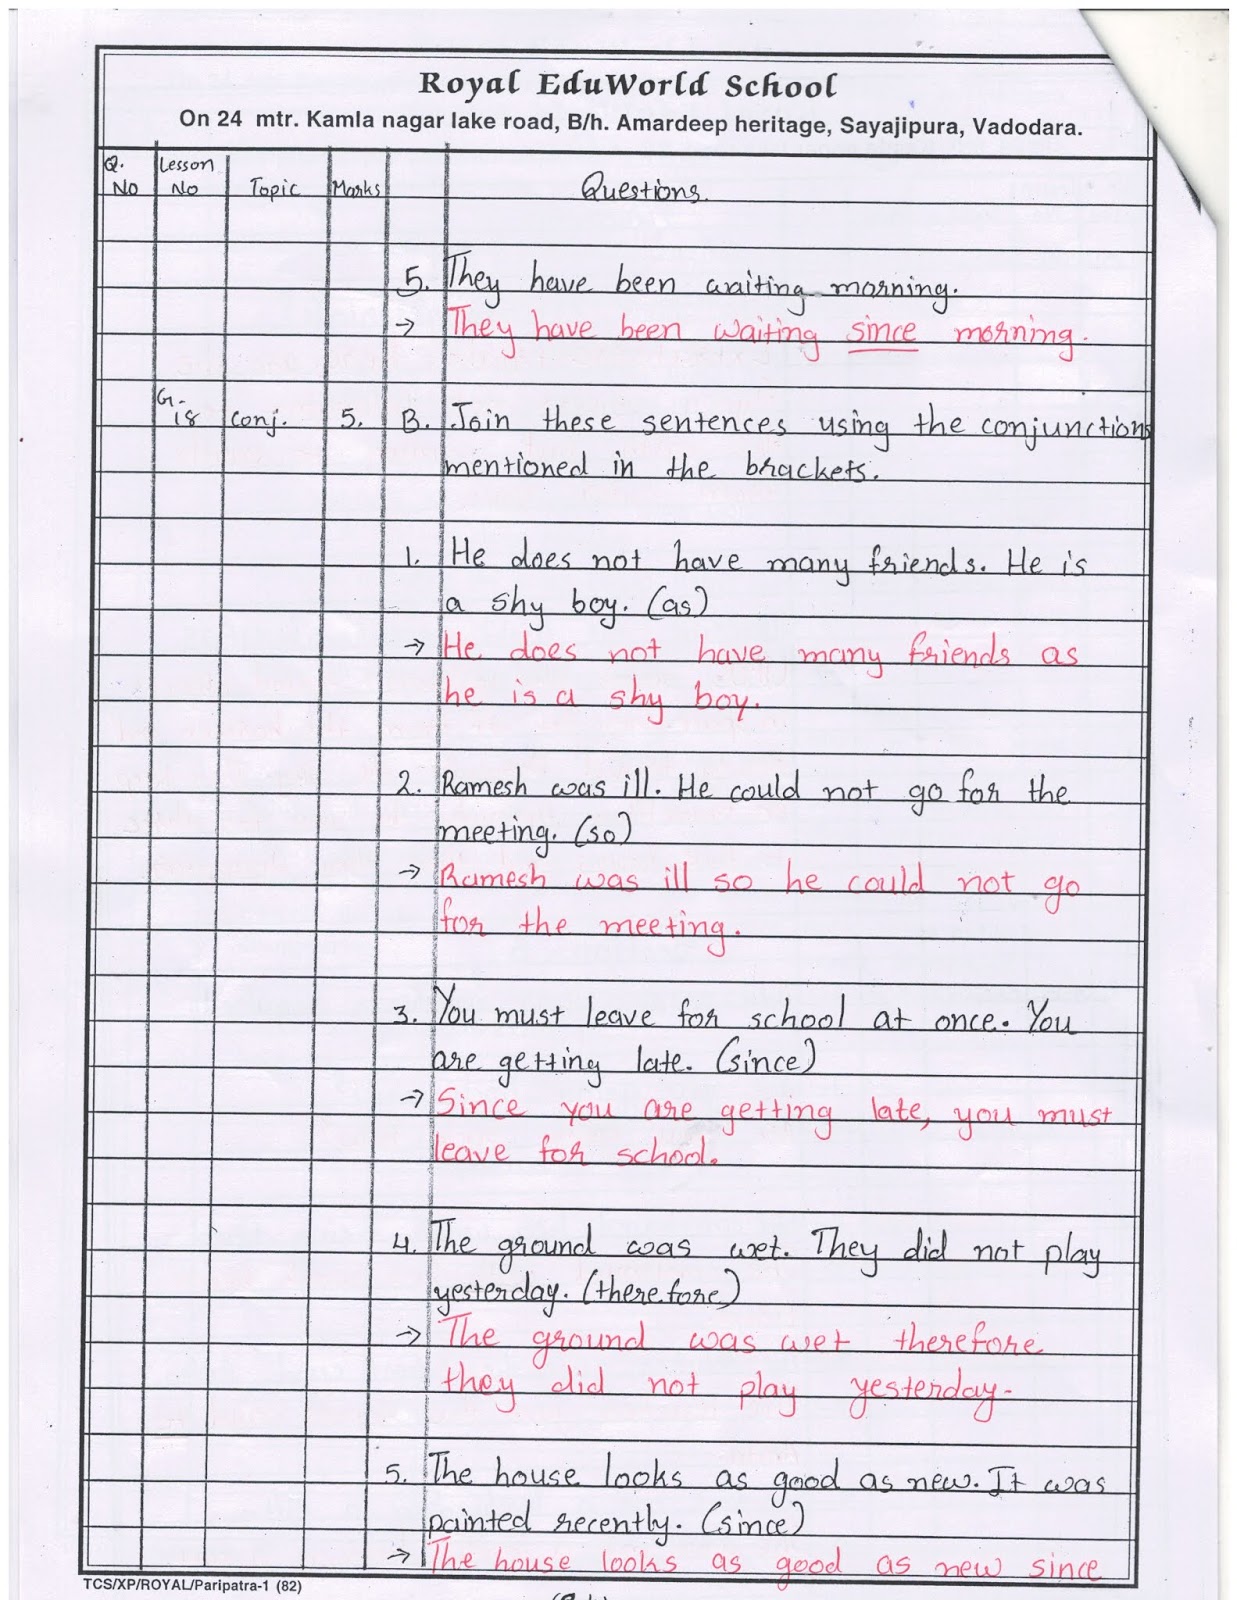 Royal EduWorld School
On 24 mtr. Kamla nagar lake road, B/h. Amardeep heritage, Sayajipura, Vadodara.
Q. No Lesson No Topic Marks Questions.
5. They have been waiting morning.
→ They have been waiting since morning.
G.18 conj. 5. B. Join these sentences using the conjunctions
mentioned in the brackets.
1. He does not have many friends. He is
a shy boy. (as)
→ He does not have many friends as
he is a shy boy.
2. Ramesh was ill. He could not go for the
meeting. (so)
→ Ramesh was ill so he could not go
for the meeting.
3. You must leave for school at once. You
are getting late. (since)
→ Since you are getting late, you must
leave for school.
4. The ground was wet. They did not play
yesterday. (therefore)
→ The ground was wet therefore
they did not play yesterday.
5. The house looks as good as new. It was
painted recently. (since)
→ The house looks as good as new since
TCS/XP/ROYAL/Paripatra-1 (82)